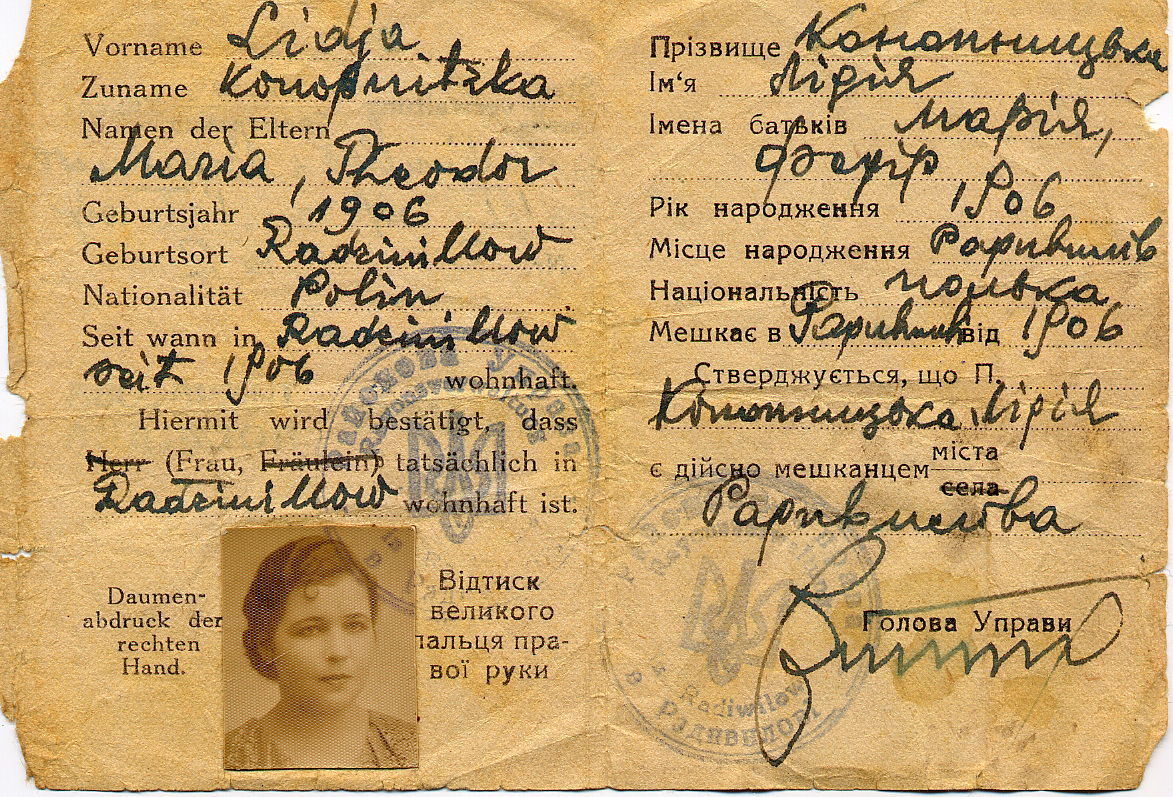 Vorname Lidja
Zuname Konopnitzka
Namen der Eltern
Maria, Theodor
Geburtsjahr 1906
Geburtsort Radziwillow
Nationalität Polin
Seit wann in Radziwillow
seit 1906 wohnhaft.
Hiermit wird bestätigt, dass
Herr (Frau, Fräulein) tatsächlich in
Radziwillow wohnhaft ist.
Daumen-
abdruck der
rechten
Hand.
Відтиск
великого
пальця пра-
вої руки
Прізвище Конопницька
Ім‘я Лідія
Імена батьків Марія,
Федір
Рік народження 1906
Місце народження Радивилів
Національність полька
Мешкає в Радивилів від 1906
Стверджується, що П.
Конопницька Лідія
є дійсно мешканцем міста
села
Радивилова
Голова Управи
Районова Управа
Radiwilow
в Радивилові